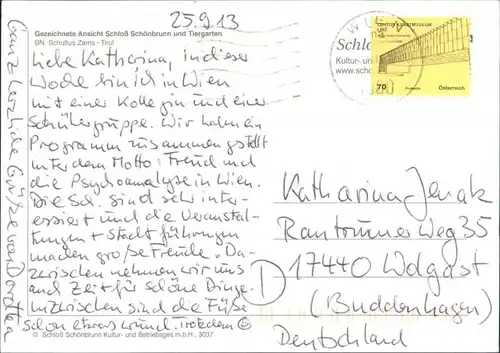 25.9.13
Gezeichnete Ansicht Schloß Schönbrunn und Tiergarten
BN: Schultus Zams - Tirol
Liebe Katharina, in dieser
Woche bin ich in Wien
mit einer Kollegin und einer
Schülergruppe. Wir haben ein
Programm zusammengestellt
unter dem Motto: Freud und
die Psychoanalyse in Wien.
Die Sch. sind sehr inter-
essiert und die Veranstal-
tungen + Stadtführungen
machen große Freude. Da-
zwischen nehmen wir uns
auch Zeit für schöne Dinge.
Inzwischen sind die Füße
schon etwas wund. Trotzdem ☺
Ganz herzliche Grüße von Dorothea
© Schloß Schönbrunn Kultur- und Betriebsges m.b.H., 3037
Schlo
Kultur- und
www.scho
LENTOS KUNSTMUSEUM
LINZ
70
Österreich
Katharina Jenak
17440 Wolgast
(Buddenhagen)
Deutschland
D